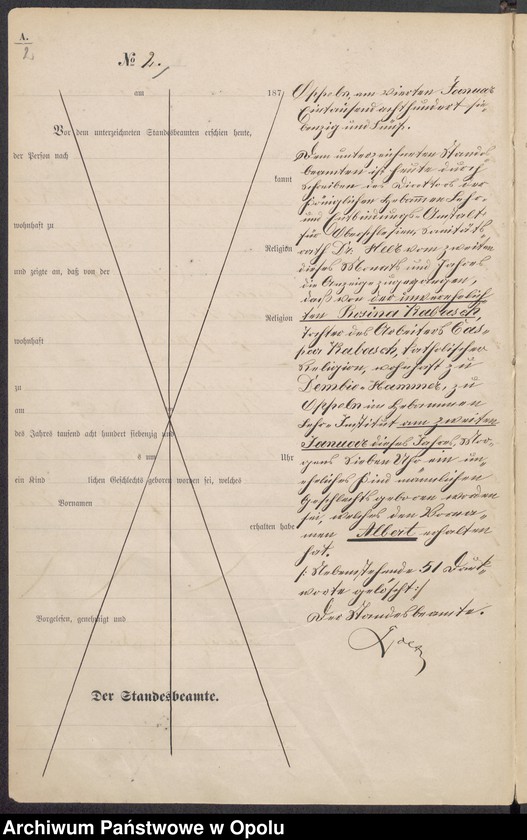 A.
2
№ 2.
am 187
Vor dem unterzeichneten Standesbeamten erschien heute,
der Person nach
kannt
wohnhaft zu
Religion
und zeigte an, daß von der
Religion
wohnhaft
zu
am
des Jahres tausend acht hundert siebenzig und
s um Uhr
ein Kind lichen Geschlechts geboren worden sei, welches
Vornamen
erhalten habe
Vorgelesen, genehmigt und
Der Standesbeamte.
Oppeln am vierten Januar
Eintausend achthundert sie-
benzig und fünf.
Dem unterzeichneten Standes
beamten ist heute durch
Schreiben des Direktors der
Königlichen Hebammen Lehr-
und Entbindungs-Anstalt
für Oberschlesien, Sanitäts
rath Dr. vom zweiten
dieses Monats und Jahres
die Anzeige zugegangen,
daß von der unverehelich
ten Rosina Kabasch,
Tochter des Arbeiters Cas-
par Kabasch, katholischer
Religion, wohnhaft zu
Dembio-Hammer, zu
Oppeln im Hebammen
Lehr-Institut am zweiten
Januar dieses Jahres, Mor-
gens sieben Uhr ein un-
eheliches Kind männlichen
Geschlechts geboren worden
sei, welches den Vorna-
men Albert erhalten
hat.
/: Nebenstehende 51 Druck-
worte gelöscht :/
Der Standesbeamte.
Archiwum Państwowe w Opolu